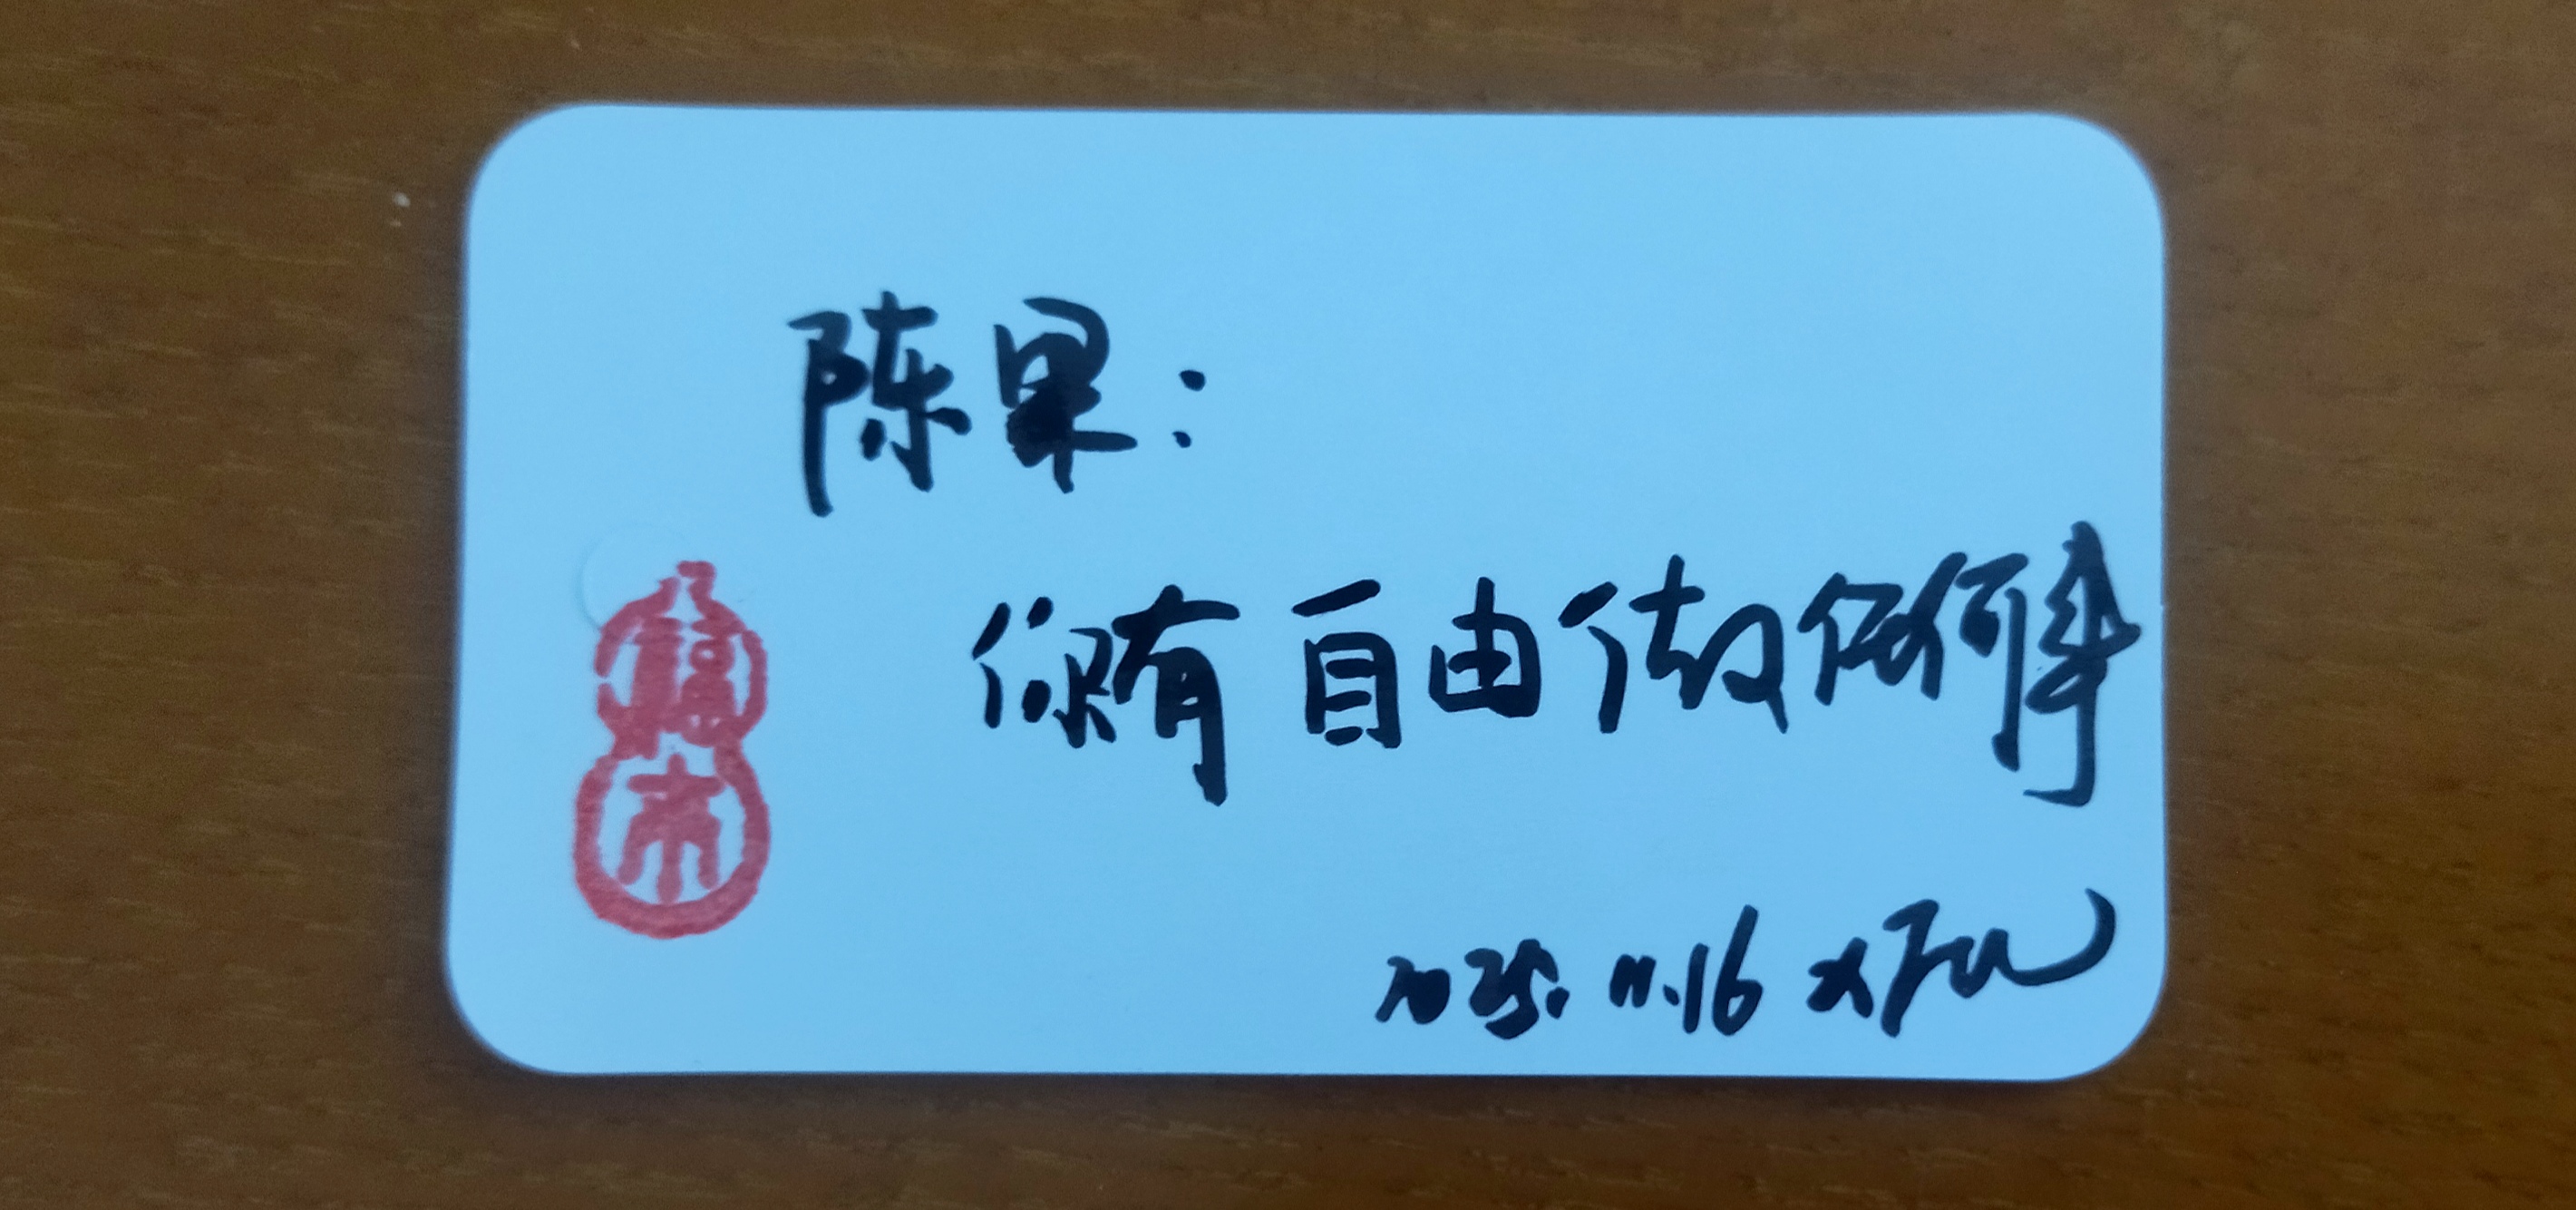 陈果：
你有自由做任何事
2025.11.16